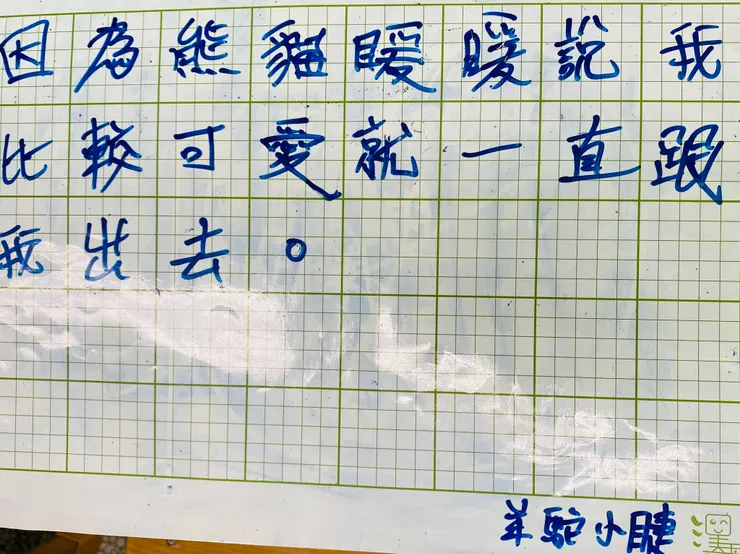 因為熊貓暖暖說我
比較可愛就一直跟
我出去。
羊駝小睫
漢